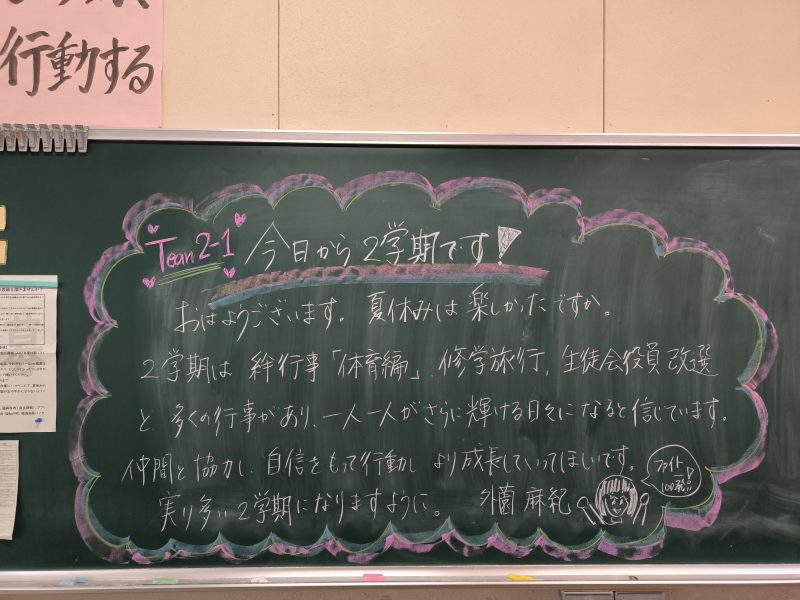 行動する
Team 2-1 今日から2学期です!
おはようございます。夏休みは楽しかったですか。
2学期は 絆行事「体育編」、修学旅行、生徒会役員改選
と 多くの行事があり、一人一人がさらに輝ける日々になると信じています。
仲間と協力し、自信をもって行動し より成長していってほしいです。
実り多い2学期になりますように。 外薗 麻紀
ファイト
一
100発!!